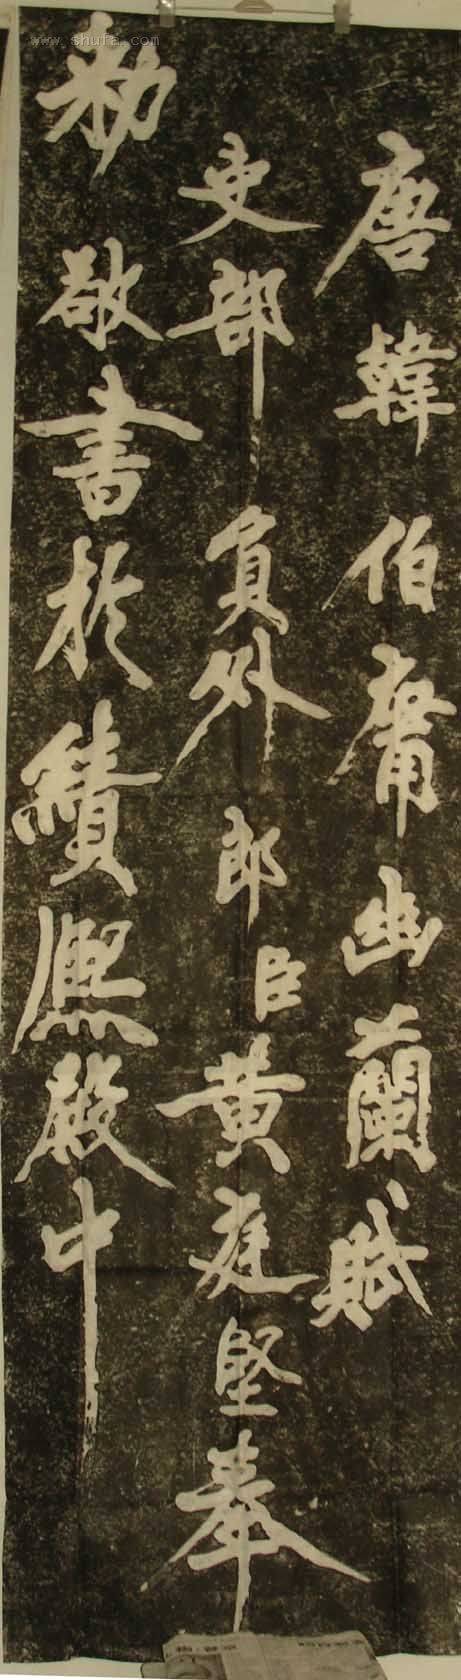 唐韓伯庸幽蘭賦
吏部員外郎臣黄庭堅奉
勑敬書於績熙殿中
www.shufa.com